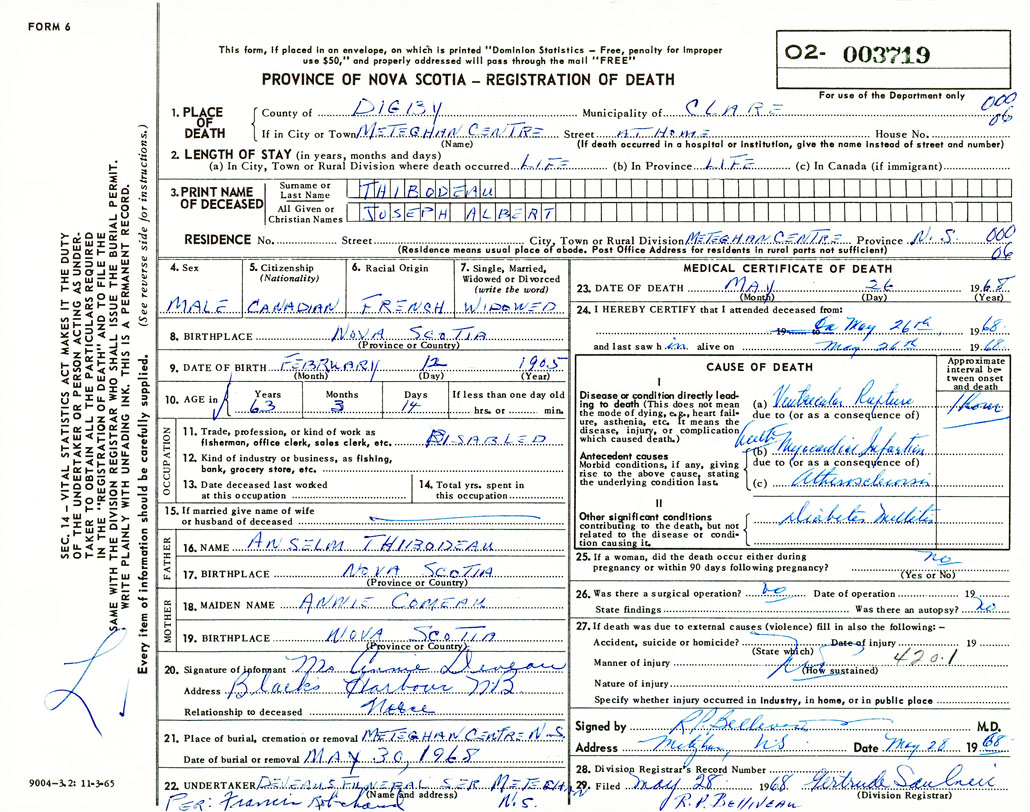 FORM 6
This form, if placed in an envelope, on which is printed "Dominion Statistics – Free, penalty for improper
use $50," and properly addressed will pass through the mail "FREE"
PROVINCE OF NOVA SCOTIA – REGISTRATION OF DEATH
02- 003719
For use of the Department only
1. PLACE OF DEATH County of DIGBY Municipality of CLARE 000 06
If in City or Town METEGHAN CENTRE Street AT HOME House No.
(Name) (If death occurred in a hospital or institution, give the name instead of street and number)
2. LENGTH OF STAY (in years, months and days)
(a) In City, Town or Rural Division where death occurred LIFE (b) In Province LIFE (c) In Canada (if immigrant)
3. PRINT NAME OF DECEASED Surname or Last Name THIBODEAU
All Given or Christian Names JOSEPH ALBERT
RESIDENCE No. Street City, Town or Rural Division METEGHAN CENTRE Province N.S. 000 06
(Residence means usual place of abode. Post Office Address for residents in rural parts not sufficient)
SEC. 14 – VITAL STATISTICS ACT MAKES IT THE DUTY
OF THE UNDERTAKER OR PERSON ACTING AS UNDER-
TAKER TO OBTAIN ALL THE PARTICULARS REQUIRED
IN THE "REGISTRATION OF DEATH" AND TO FILE THE
SAME WITH THE DIVISION REGISTRAR WHO SHALL ISSUE THE BURIAL PERMIT.
WRITE PLAINLY WITH UNFADING INK. THIS IS A PERMANENT RECORD.
Every item of information should be carefully supplied. (See reverse side for instructions.)
4. Sex MALE
5. Citizenship (Nationality) CANADIAN
6. Racial Origin FRENCH
7. Single, Married, Widowed or Divorced (write the word) WIDOWED
8. BIRTHPLACE NOVA SCOTIA
(Province or Country)
9. DATE OF BIRTH FEBRUARY 12 1905
(Month) (Day) (Year)
10. AGE in Years 63 Months 3 Days 14 If less than one day old hrs. or min.
OCCUPATION
11. Trade, profession, or kind of work as
fisherman, office clerk, sales clerk, etc. DISABLED
12. Kind of industry or business, as fishing,
bank, grocery store, etc.
13. Date deceased last worked
at this occupation
14. Total yrs. spent in
this occupation
15. If married give name of wife
or husband of deceased
FATHER
16. NAME ANSELM THIBODEAU
17. BIRTHPLACE NOVA SCOTIA
(Province or Country)
MOTHER
18. MAIDEN NAME ANNIE COMEAU
19. BIRTHPLACE NOVA SCOTIA
(Province or Country)
20. Signature of informant Annie Deveau
Address Blacks Harbour NB
Relationship to deceased Niece
21. Place of burial, cremation or removal METEGHAN CENTRE N-S.
Date of burial or removal MAY 30, 1968
22. UNDERTAKER DEVEAUS FUNERAL SER METEGHAN
(Name and address) N.S.
PER: Francis
9004-3.2: 11-3-65
MEDICAL CERTIFICATE OF DEATH
23. DATE OF DEATH MAY 26 1968
(Month) (Day) (Year)
24. I HEREBY CERTIFY that I attended deceased from:
19 on May 26th, 1968
and last saw h im alive on May 26th 1968
CAUSE OF DEATH
Approximate
interval be-
tween onset
and death
I
Disease or condition directly lead-
ing to death (This does not mean
the mode of dying, e.g., heart fail-
ure, asthenia, etc. It means the
disease, injury, or complication
which caused death.)
(a) Ventricular Rupture 1 hour
due to (or as a consequence of)
Antecedent causes
Morbid conditions, if any, giving
rise to the above cause, stating
the underlying condition last.
(b) Acute Myocardial Infarction
due to (or as a consequence of)
(c) Atherosclerosis
II
Other significant conditions
contributing to the death, but not
related to the disease or condi-
tion causing it.
Diabetes Mellitis
25. If a woman, did the death occur either during
pregnancy or within 90 days following pregnancy? no
(Yes or No)
26. Was there a surgical operation? no Date of operation 19
State findings Was there an autopsy? no
27. If death was due to external causes (violence) fill in also the following: –
Accident, suicide or homicide? Date of injury 19
(State which)
Manner of injury 420.1
(How sustained)
Nature of injury
Specify whether injury occurred in industry, in home, or in public place
Signed by R.P. Belliveau M.D.
Address Meteghan, NS Date May 28 1968
28. Division Registrar's Record Number
29. Filed May 28 1968 Gertrude Saulnier
(Division Registrar)
R.P. Belliveau